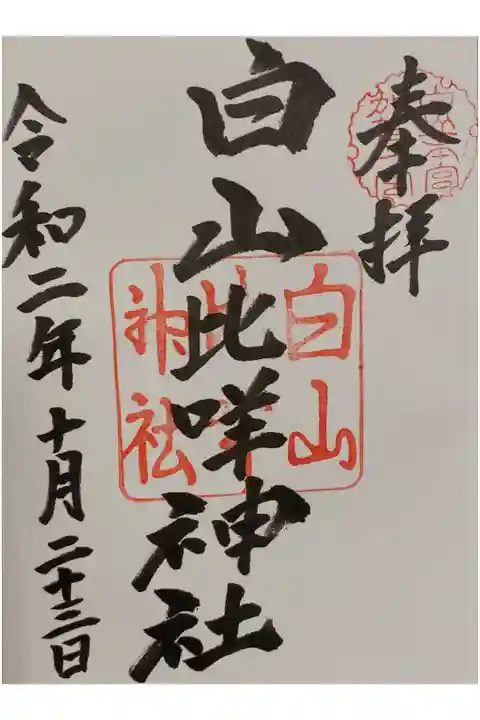 奉拝
白山比咩神社
令和二年十月二十三日
白山
神社